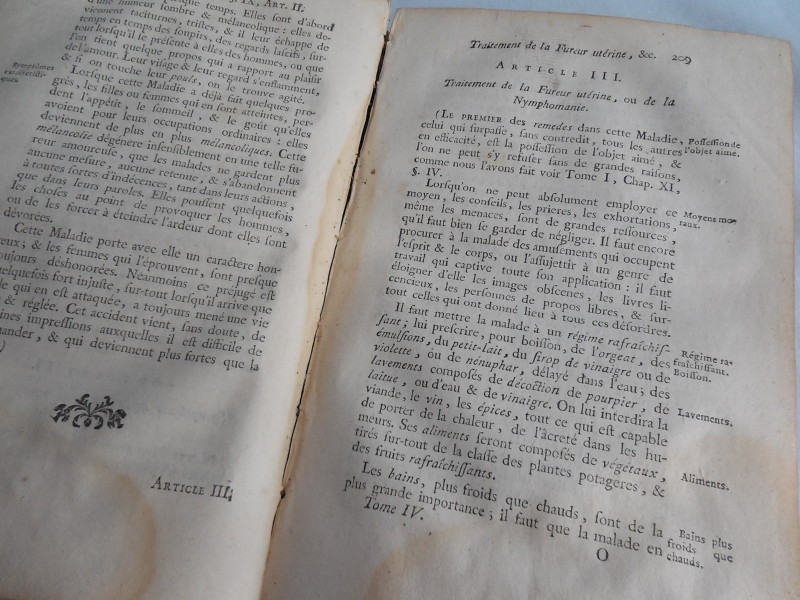 IX, ART. II.
que temps. Elles sont d'abord
d'une humeur sombre & mélancolique : elles de-
viennent taciturnes, tristes, & il leur échappe de
temps en temps des soupirs, des regards lascifs, sur-
tout lorsqu'il se présente à elles des hommes, ou que
l'on tient quelque propos qui a rapport au plaisir
de l'amour. Leur visage & leur regard s'enflamment,
& si on touche leur pouls, on le trouve agité.
Symptômes
caractéristi-
ques.
Lorsque cette Maladie a déjà fait quelques pro-
grès, les filles ou femmes qui en sont atteintes, per-
dent l'appétit, le sommeil, & le goût qu'elles
avoient pour leurs occupations ordinaires : elles
deviennent de plus en plus mélancoliques. Cette
mélancolie dégénere insensiblement en une telle fu-
reur amoureuse, que les malades ne gardent plus
aucune mesure, aucune retenue, & s'abandonnent
à toutes sortes d'indécences, tant dans leurs actions,
que dans leurs paroles. Elles poussent quelquefois
les choses au point de provoquer les hommes,
ou de les forcer à éteindre l'ardeur dont elles sont
dévorées.
Cette Maladie porte avec elle un caractère hon-
teux ; & les femmes qui l'éprouvent, sont presque
toujours déshonorées. Néanmoins ce préjugé est
quelquefois fort injuste, sur-tout lorsqu'il arrive que
le qui en est attaquée, a toujours mené une vie
& réglée. Cet accident vient, sans doute, de
ines impressions auxquelles il est difficile de
mander, & qui deviennent plus fortes que la
)
ARTICLE III;
Traitement de la Fureur utérine, &c. 209
ARTICLE III.
Traitement de la Fureur utérine, ou de la
Nymphomanie.
(LE PREMIER des remedes dans cette Maladie,
celui qui surpasse, sans contredit, tous les autres
en efficacité, est la possession de l'objet aimé, &
l'on ne peut s'y refuser sans de grandes raisons,
comme nous l'avons fait voir Tome I, Chap. XI,
§. IV.
Possession de
l'objet aimé.
Lorsqu'on ne peut absolument employer ce
moyen, les conseils, les prieres, les exhortations,
même les menaces, sont de grandes ressources,
qu'il faut bien se garder de négliger. Il faut encore
procurer à la malade des amusements qui occupent
l'esprit & le corps, ou l'assujettir à un genre de
travail qui captive toute son application : il faut
éloigner d'elle les images obscenes, les livres li-
cencieux, les personnes de propos libres, & sur-
tout celles qui ont donné lieu à tous ces désordres.
Moyens mo-
raux.
Il faut mettre la malade à un régime rafraîchis-
sant ; lui prescrire, pour boisson, de l'orgeat, des
émulsions, du petit-lait, du sirop de vinaigre ou de
violette, ou de nénuphar, délayé dans l'eau ; des
lavements composés de décoction de pourpier, de
laitue, ou d'eau & de vinaigre. On lui interdira la
viande, le vin, les épices, tout ce qui est capable
de porter de la chaleur, de l'âcreté dans les hu-
meurs. Ses aliments seront composés de végétaux,
tirés sur-tout de la classe des plantes potageres, &
des fruits rafraîchissants.
Régime ra-
fraîchissant.
Boisson.
Lavements.
Aliments.
Les bains, plus froids que chauds, sont de la
plus grande importance ; il faut que la malade en
Bains plus
froids que
chauds.
Tome IV.
O